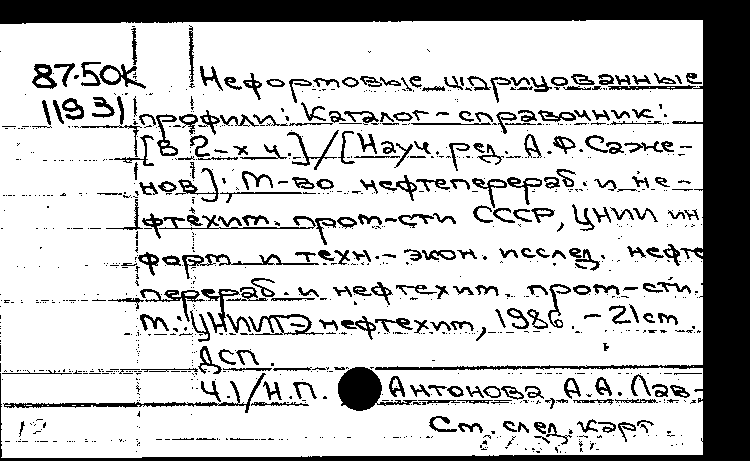 87-50К Неформовые шприцованные
11931 профили: Каталог-справочник:
[В 2-х ч.]/[Науч. ред. А.Ф.Саже-
нов]; М-во нефтеперераб. и не-
фтехим. пром-сти СССР, ЦНИИ ин
форм. и техн.-экон. исслед. нефте
перераб. и нефтехим. пром-сти.
М.: ЦНИИТЭнефтехим, 1986. - 21см.
ДСП.
Ч.1/Н.П. Антонова, А.А. Лав-
См. след. карт.